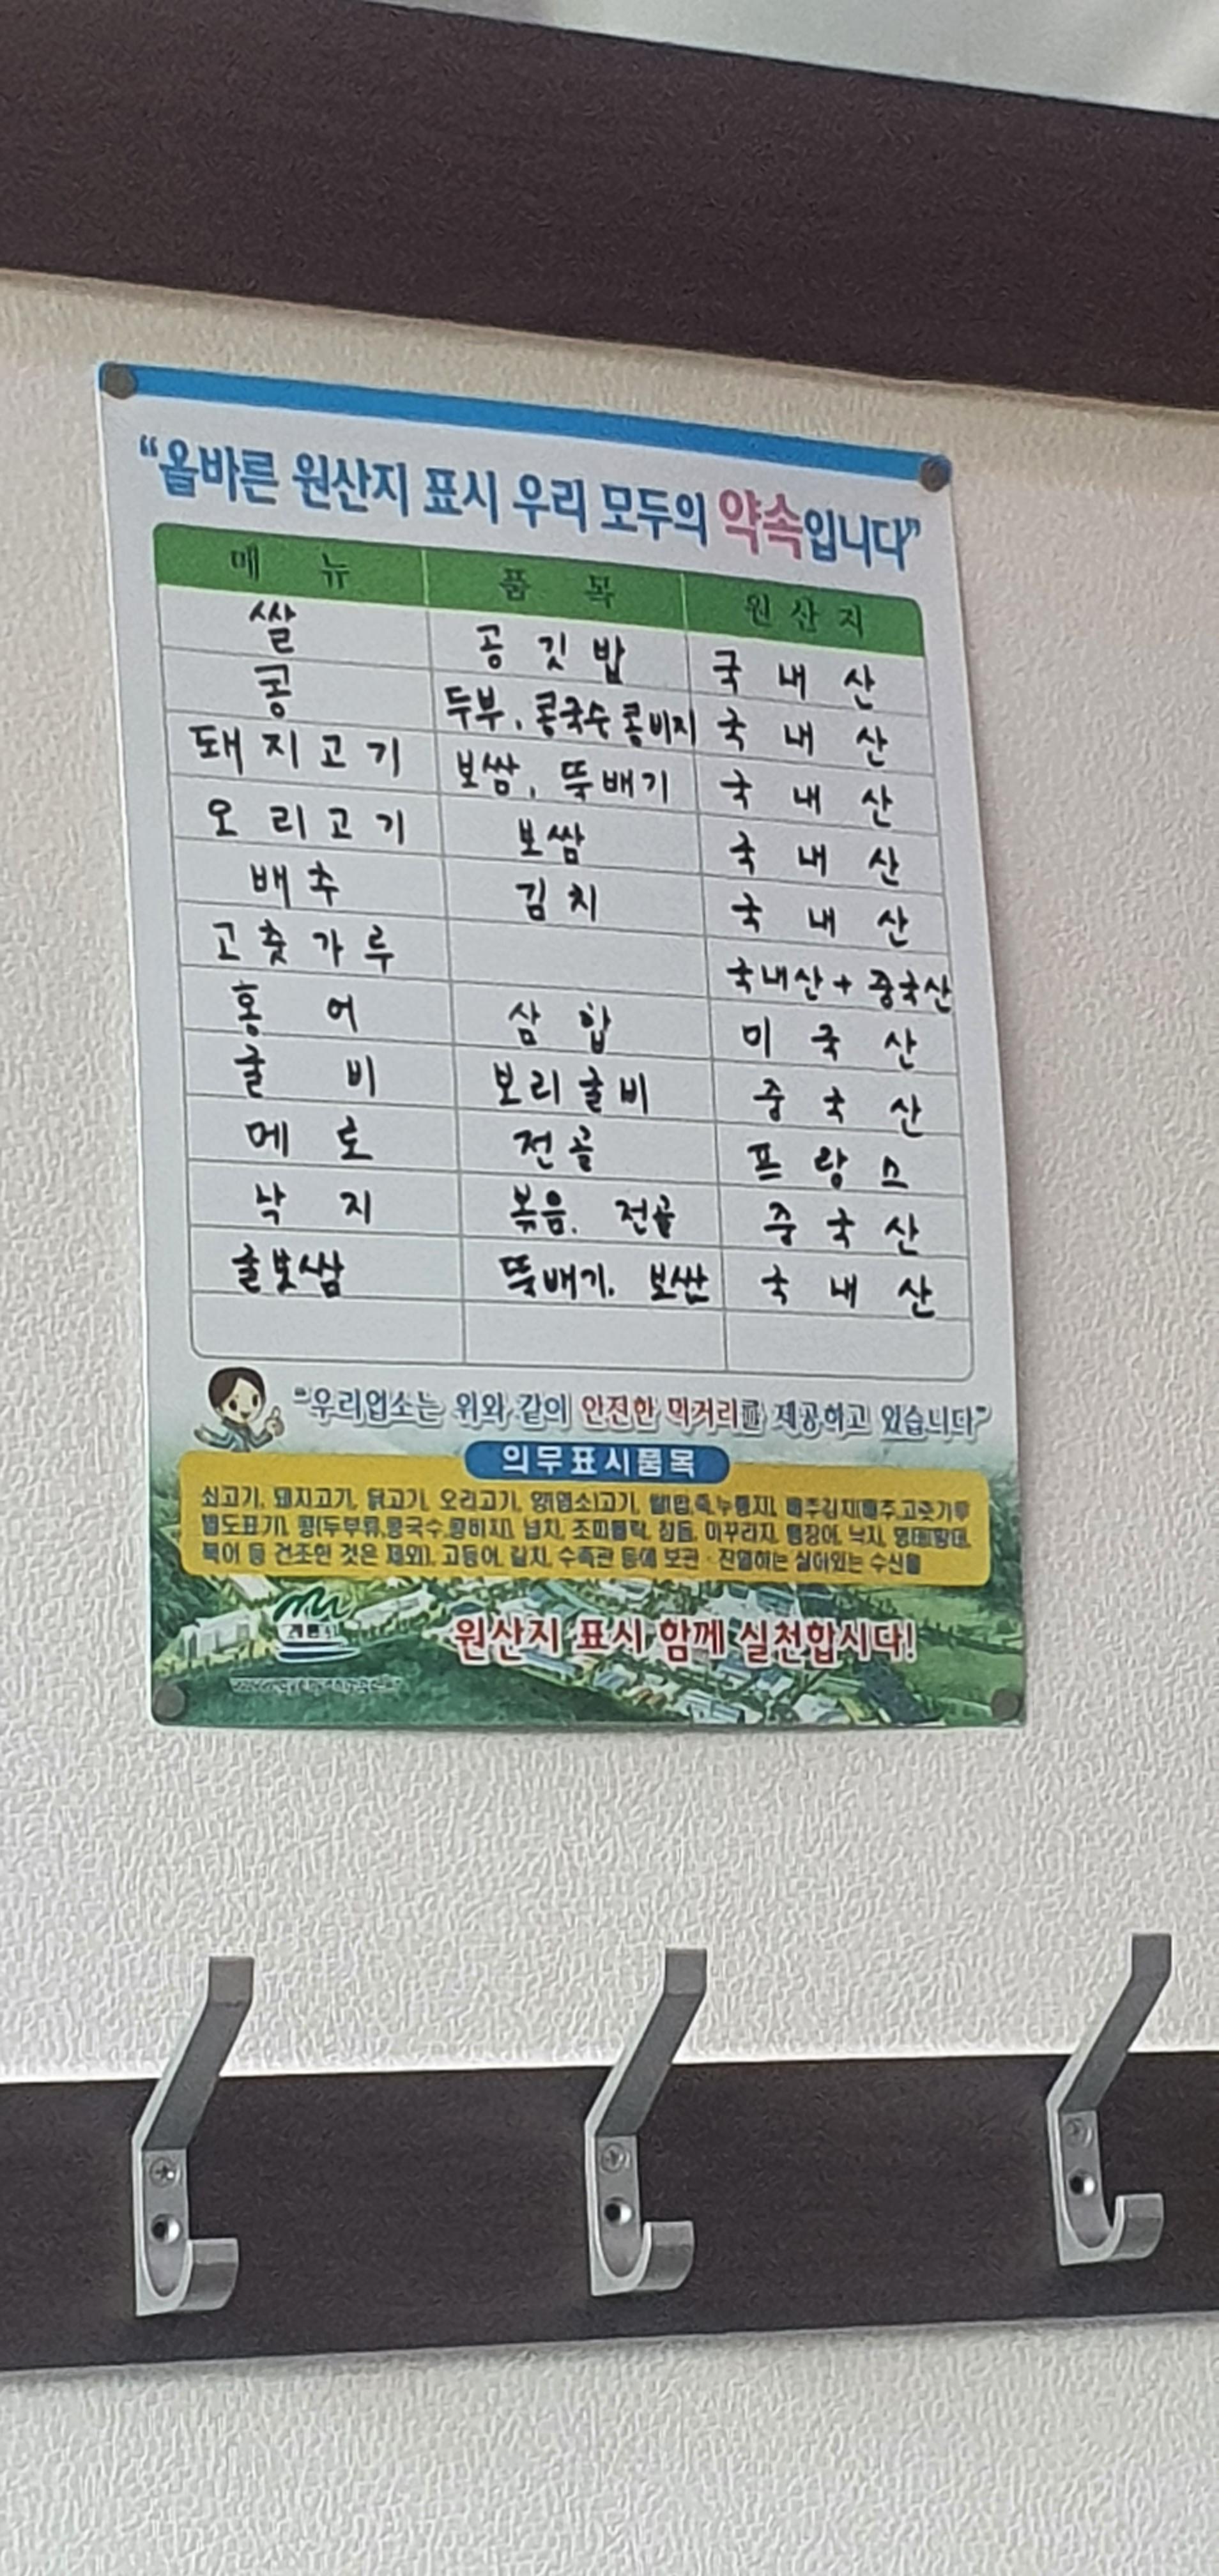 “올바른 원산지 표시 우리 모두의 약속입니다”
메 뉴 품 목 원산지
쌀 공깃밥 국내산
콩 두부, 콩국수 콩비지 국내산
돼지고기 보쌈, 뚝배기 국내산
오리고기 보쌈 국내산
배추 김치 국내산
고춧가루 국내산+중국산
홍어 삼합 미국산
굴비 보리굴비 중국산
메로 전골 프랑스
낙지 볶음. 전골 중국산
굴보쌈 뚝배기. 보쌈 국내산
“우리업소는 위와 같이 안전한 먹거리를 제공하고 있습니다”
의무표시품목
쇠고기, 돼지고기, 닭고기, 오리고기, 양(염소)고기, 쌀(밥,죽,누룽지), 배추김치(배추,고춧가루
별도표기), 콩(두부류,콩국수,콩비지), 넙치, 조피볼락, 참돔, 미꾸라지, 뱀장어, 낙지, 명태(황태,
북어 등 건조한 것은 제외), 고등어, 갈치, 수족관 등에 보관·진열하는 살아있는 수산물
계룡시
원산지 표시 함께 실천합시다!